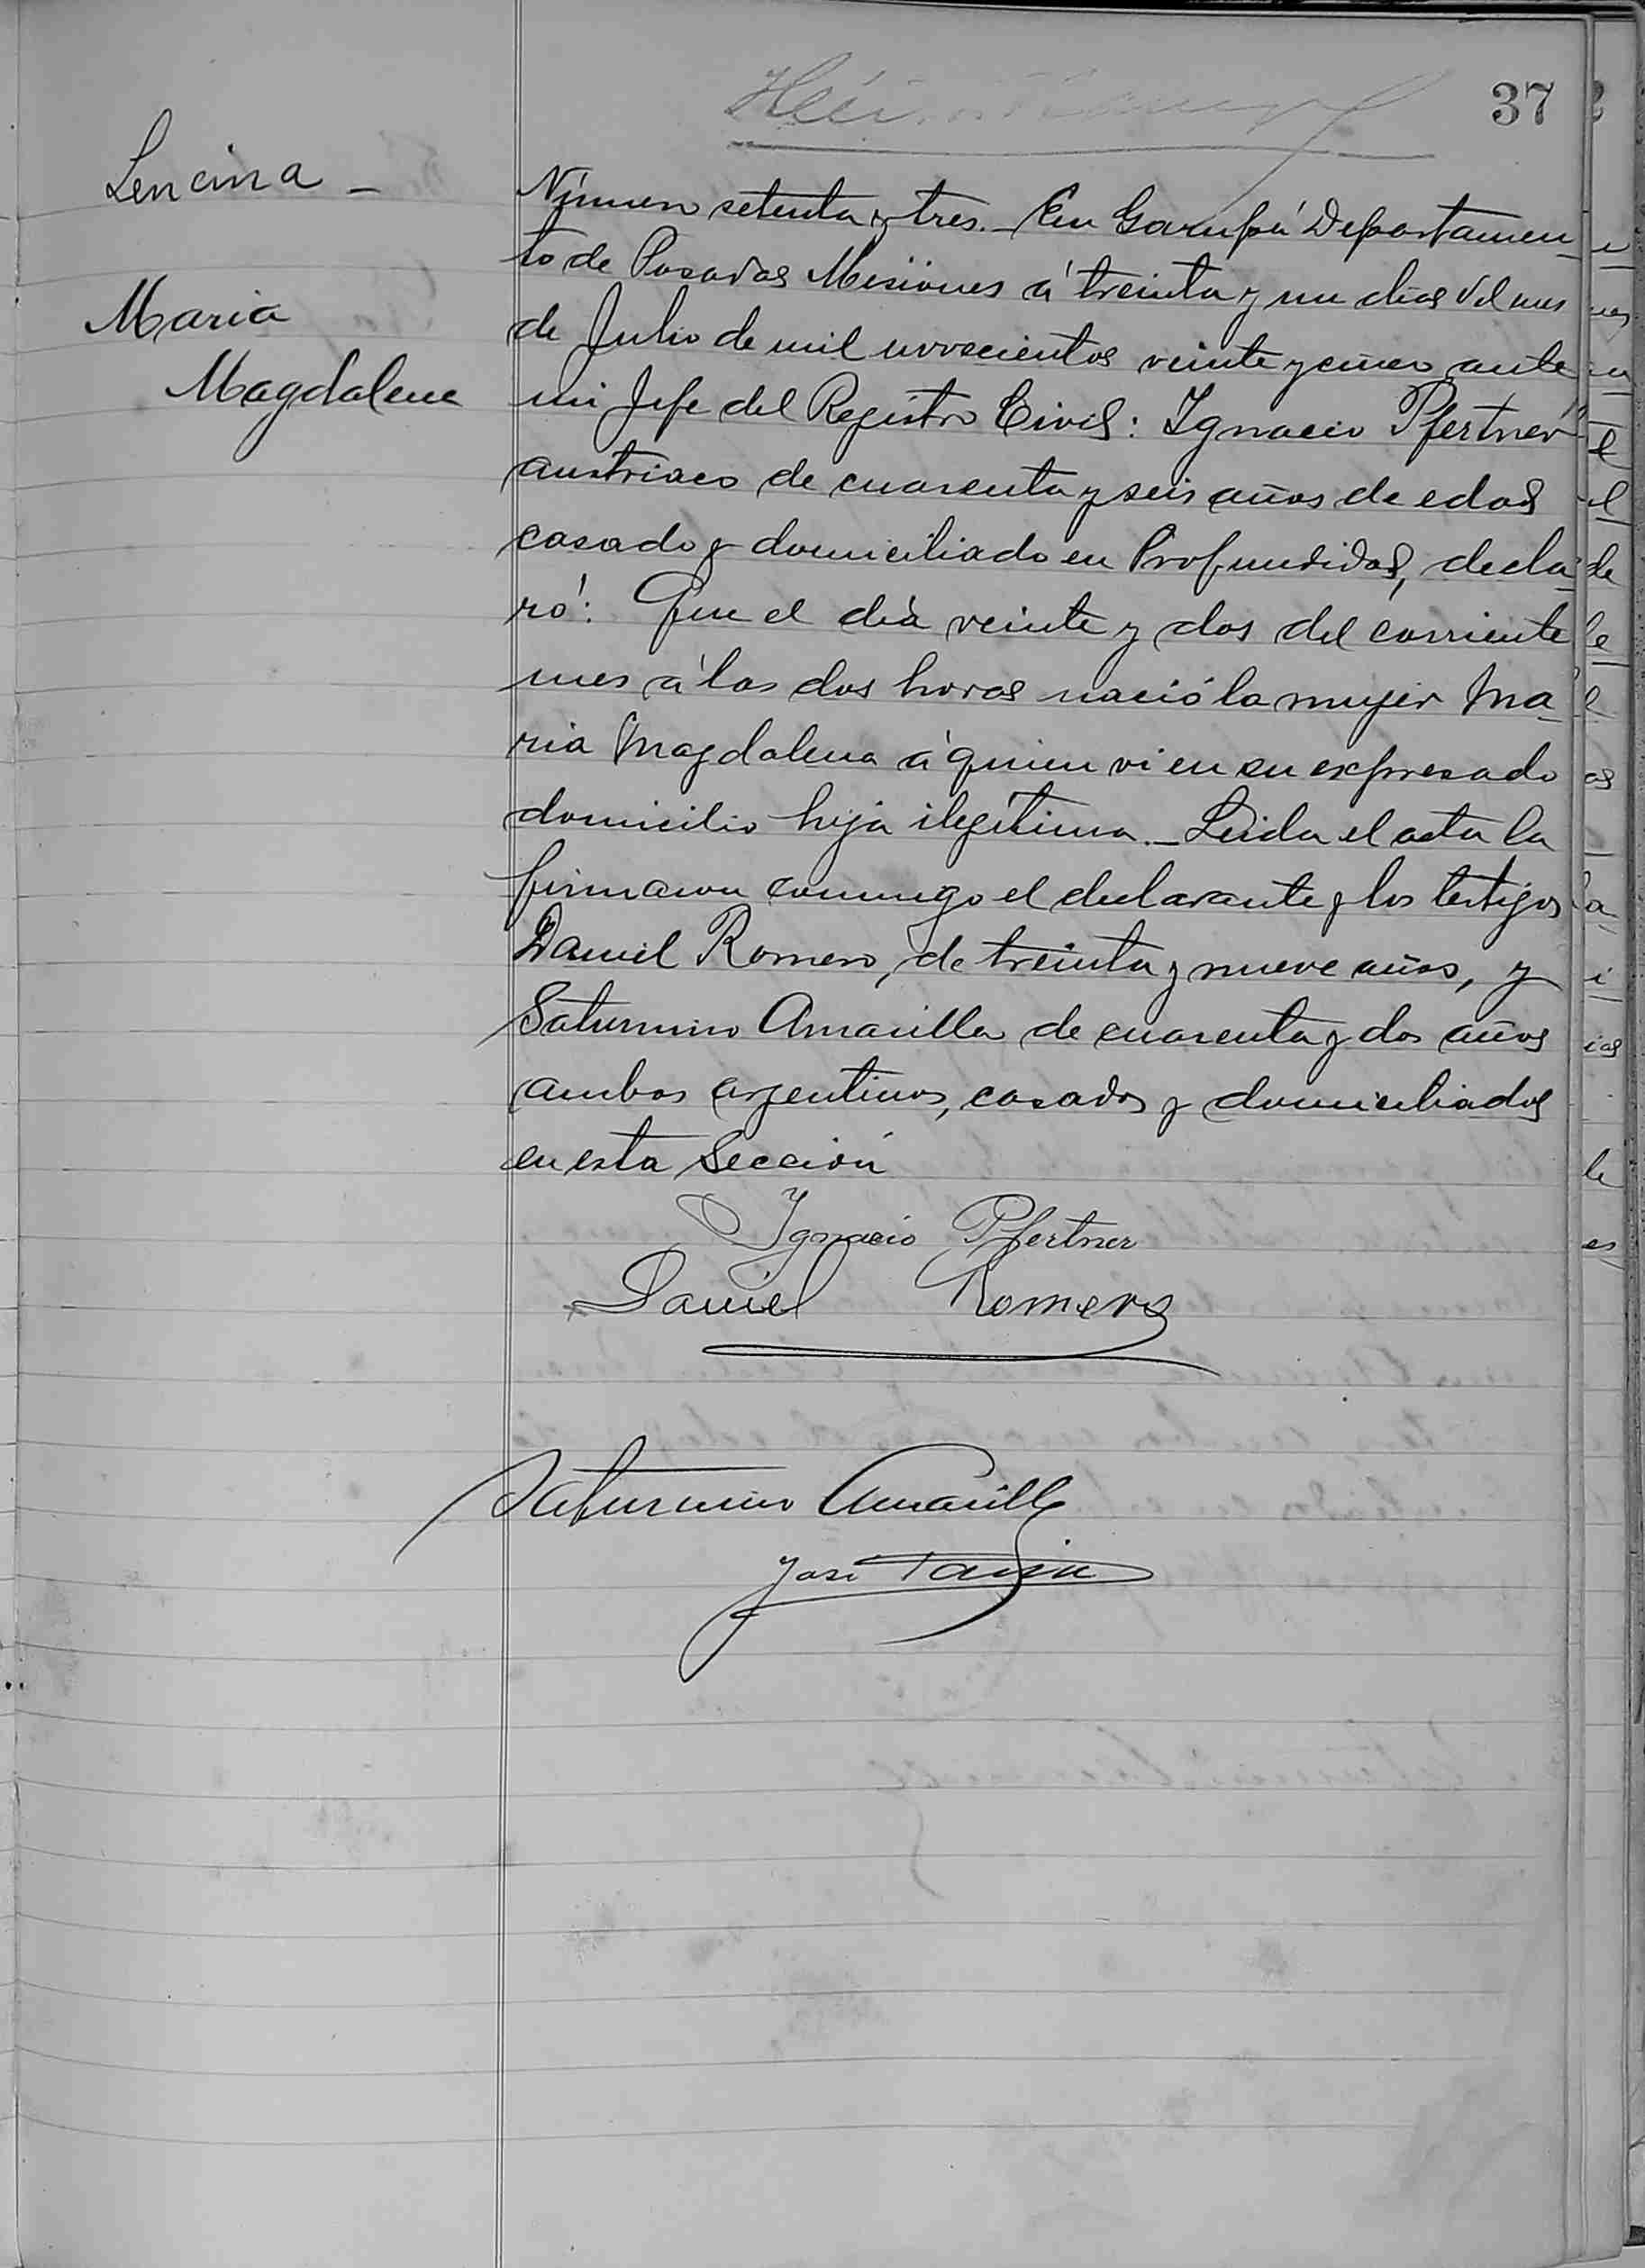 37
Lencina -
Maria
Magdalena
Número setenta y tres. - En Garupá Departamen-
to de Posadas Misiones á treinta y un dias del mes
de Julio de mil novecientos veinte y cinco ante
mi Jefe del Registro Civil: Ignacio Pfertner
austriaco de cuarenta y seis años de edad
casado y domiciliado en Profundidad, decla-
ró: Que el día veinte y dos del corriente
mes á las dos horas nació la mujer Ma-
ria Magdalena á quien vi en su expresado
domicilio hija ilegítima. - Leida el acta la
firmaron conmigo el declarante y los testigos
Daniel Romero, de treinta y nueve años, y
Saturnino Amarilla de cuarenta y dos años
ambos argentinos, casados y domiciliados
en esta Sección
Ignacio Pfertner
Daniel Romero
Saturnino Amarilla
José